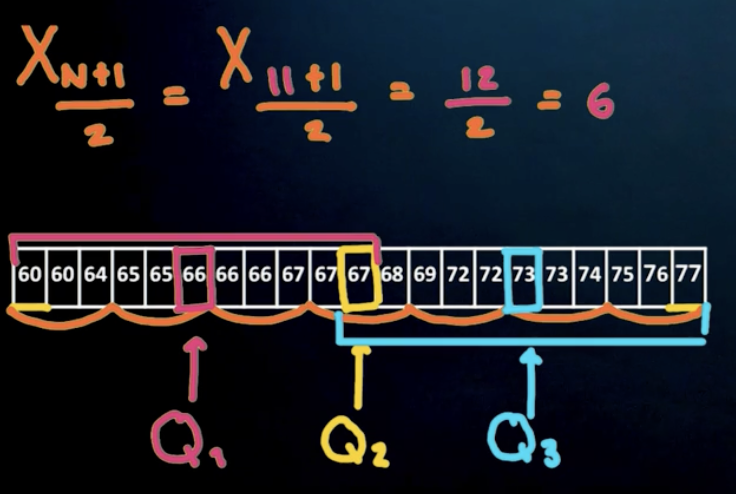 X N+1/2 = X 11+1/2 = 12/2 = 6
60 60 64 65 65 66 66 66 67 67 67 68 69 72 72 73 73 74 75 76 77
Q1 Q2 Q3